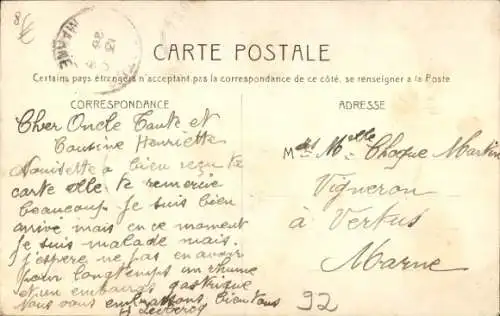 8 €
MARNE
CARTE POSTALE
Certains pays étrangers n'acceptant pas la correspondance de ce côté, se renseigner à la Poste
CORRESPONDANCE
Cher Oncle Tante et
Cousine Henriette
a bien reçu ta
carte elle te remercie
beaucoup. Je suis bien
arrivé mais en ce moment
je suis malade mais.
J'espère ne pas en avoir
pour longtemps un rhume
et un embarras gastrique
Nous vous embrassons bien tous
ADRESSE
Melle Choque Martin
Vigneron
à Vertus
Marne
92